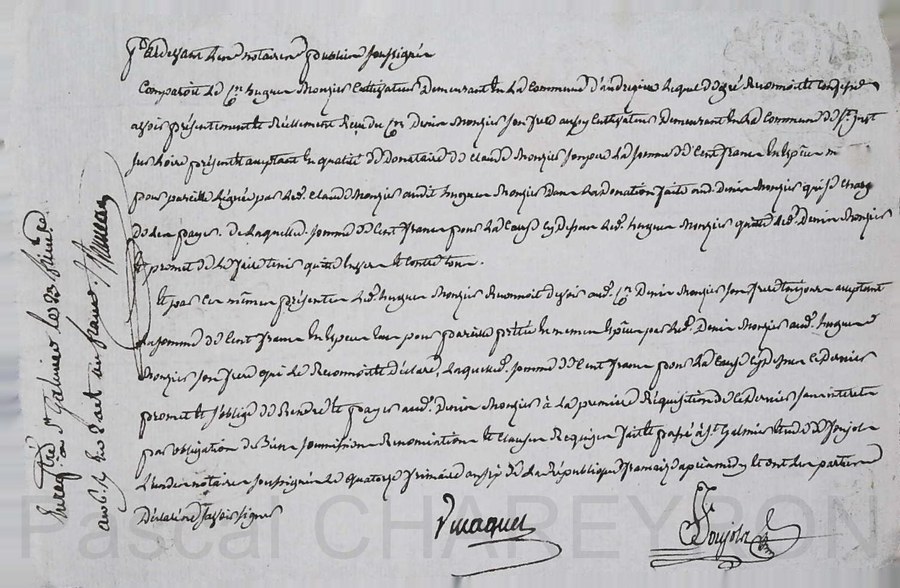 Pardevant les notaires publics soussignés
Comparoit le Cen hugues Monzier Cultivateur demeurant en la commune d'andrezieu lequel de gré Reconnoit et Confesse
avoir présentement et Réellement Reçu du Cen Denis Monzier son frere aussy Cultivateur demeurant en la Commune de St. just
sur Loire présent et acceptant en qualité de Donataire de claude Monzier son pere La somme de Cent francs en Espèces
pour pareille Léguée par led. Claude Monzier audit hugues Monzier dans La donation faite aud. Denis Monzier qui se charg
de les payer. de Laquelle d. somme de Cent francs pour La Cause Cy dessus led. hugues Monzier quitte led. Denis Monzier
et promet de le faire tenir quitte Envers et contre tous.
Et par Ces mêmes présentes led. hugues Monzier Reconnoit devoir aud. Cen Denis Monzier son frere toujours acceptant
La somme de Cent francs en Espèces pour pareille prêtée en mêmes Espèces par led. Denis Monzier aud. hugues
Monzier son frere qui Le Reconnoit et déclare, Laquelle d. somme de Cent francs pour La Cause Cy dessus Ce dernier
promet et s'oblige de Rendre et payer aud. Denis Monzier à La premiere Réquisition de Ce dernier sans interets
par obligation de Biens soumissions Renonciations et clauses Requises fait et passé à St. Galmier Etude de Foujols
L'un des notaires soussignés Le quatorze frimaire an sept de La République française après midy et ont les parties
Déclaré ne savoir signer
Vmaquet
Foujols
Enregistré à St Galmier le 23 frimre
an 7
Pascal CHAPEYRON